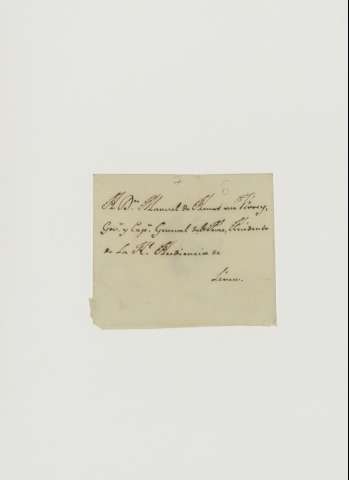 A Dn. Manuel de Amat mi Virrey,
Govr. y Capn. General del Peru, Presidente
de la Rl. Audiencia de
Lima.